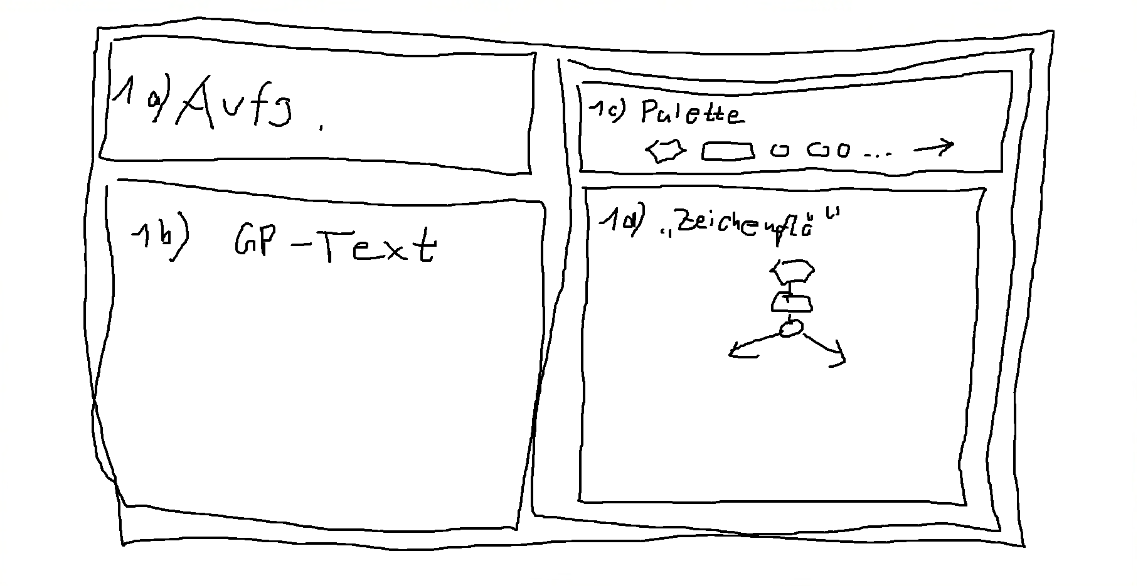 1a) Aufg.
1b) GP-Text
1c) Palette
...
1d) „Zeichenflä"